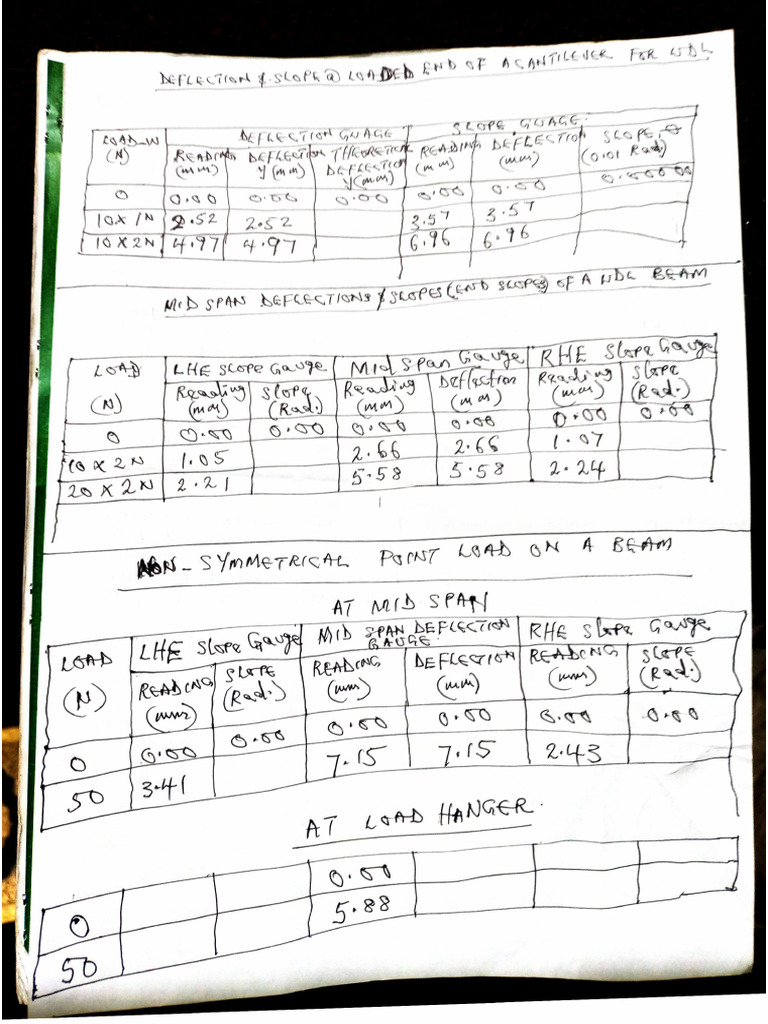 DEFLECTION & SLOPE @ LOADED END OF A CANTILEVER FOR UDL
LOAD_W (N) DEFLECTION GUAGE SLOPE GUAGE.
READING (mm) DEFLECTION y (mm) THEORETICAL DEFLECTION y (mm) READING (mm) DEFLECTION (mm) SLOPE, θ (0.01 Rad)
0 0.00 0.00 0.00 0.00 0.00
10 X 1N 2.52 2.52 3.57 3.57
10 X 2N 4.97 4.97 6.96 6.96
MID SPAN DEFLECTIONS & SLOPES (END SLOPES) OF A UDL BEAM
LOAD (N) LHE SLOPE Gauge Mid Span Gauge RHE Slope Gauge
Reading (mm) Slope (Rad.) Reading (mm) Deflection (mm) Reading (mm) Slope (Rad.)
0 0.00 0.00 0.00 0.00 0.00 0.00
10 X 2N 1.05 2.66 2.66 1.07
20 X 2N 2.21 5.58 5.58 2.24
NON-SYMMETRICAL POINT LOAD ON A BEAM
AT MID SPAN
LOAD (N) LHE Slope Gauge MID SPAN DEFLECTION GAUGE. RHE Slope Gauge
READING (mm) SLOPE (Rad.) READING (mm) DEFLECTION (mm) READING (mm) SLOPE (Rad.)
0 0.00 0.00 0.00 0.00 0.00 0.00
50 3.41 7.15 7.15 2.43
AT LOAD HANGER.
0 0.00
50 5.88